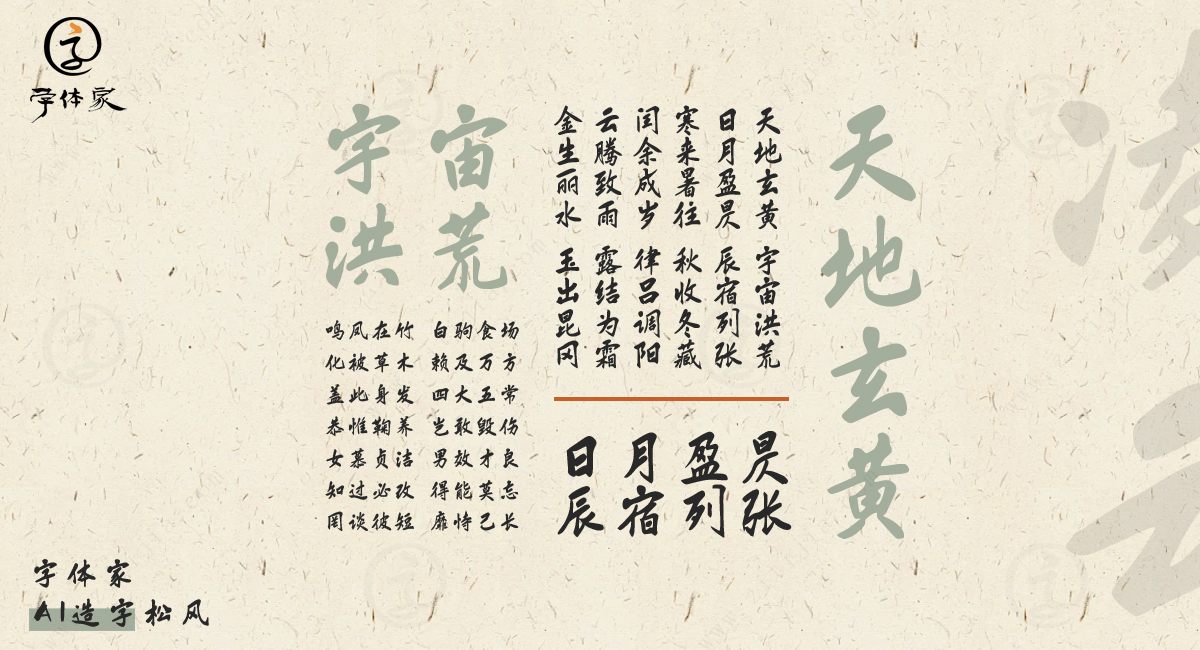 字
字体家
天地玄黄
天地玄黄 宇宙洪荒
日月盈昃 辰宿列张
寒来暑往 秋收冬藏
闰余成岁 律吕调阳
云腾致雨 露结为霜
金生丽水 玉出昆冈
日月盈昃
辰宿列张
宇宙
洪荒
鸣凤在竹 白驹食场
化被草木 赖及万方
盖此身发 四大五常
恭惟鞠养 岂敢毁伤
女慕贞洁 男效才良
知过必改 得能莫忘
罔谈彼短 靡恃己长
字体家
AI造字松风